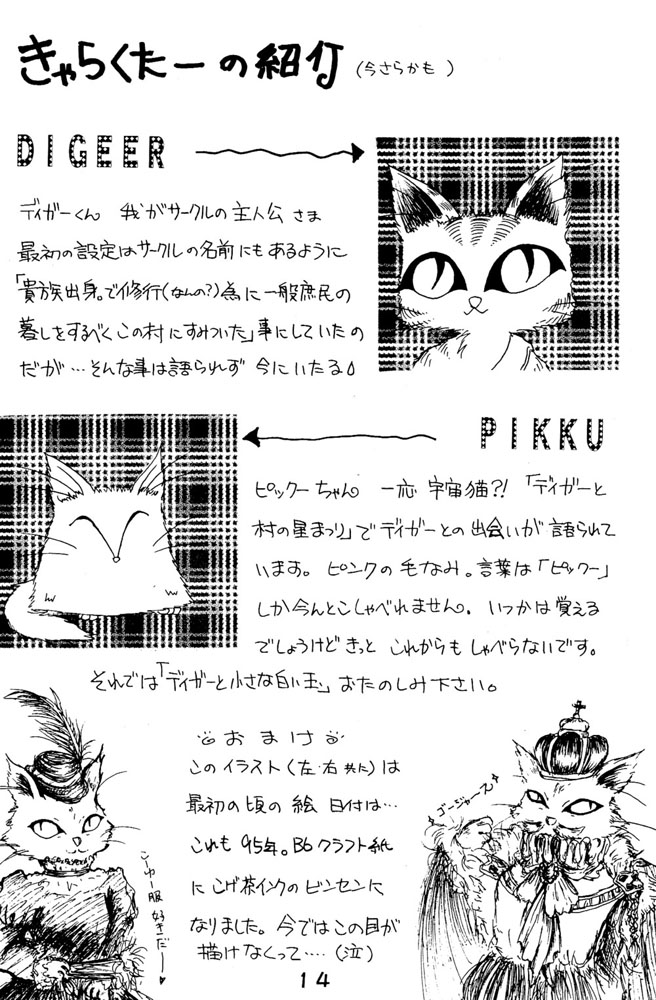 きゃらくたーの紹介(今さらかも)
DIGEER
ディガーくん 我がサークルの主人公さま
最初の設定はサークルの名前にもあるように
「貴族出身。で修行(なんの?)為に一般庶民の
暮しをするべくこの村にすみついた」事にしていたの
だが…そんな事は語られず今にいたる
PIKKU
ピックーちゃん 一応宇宙猫?!「ディガーと
村の星まつり」でディガーとの出会いが語られて
います。ピンクの毛なみ。言葉は「ピックー」
しか今んとこしゃべれません。いつかは覚える
でしょうけどきっとこれからもしゃべらないです。
それでは「ディガーと小さな白い玉」おたのしみ下さい。
おまけ
このイラスト(左・右共に)は
最初の頃の絵 日付は…
これも95年。B6クラフト紙
にこげ茶インクのビンセンに
なりました。今ではこの目が
描けなくって‥‥(泣)
こーゆー服好きだー♥
ゴージャース
14